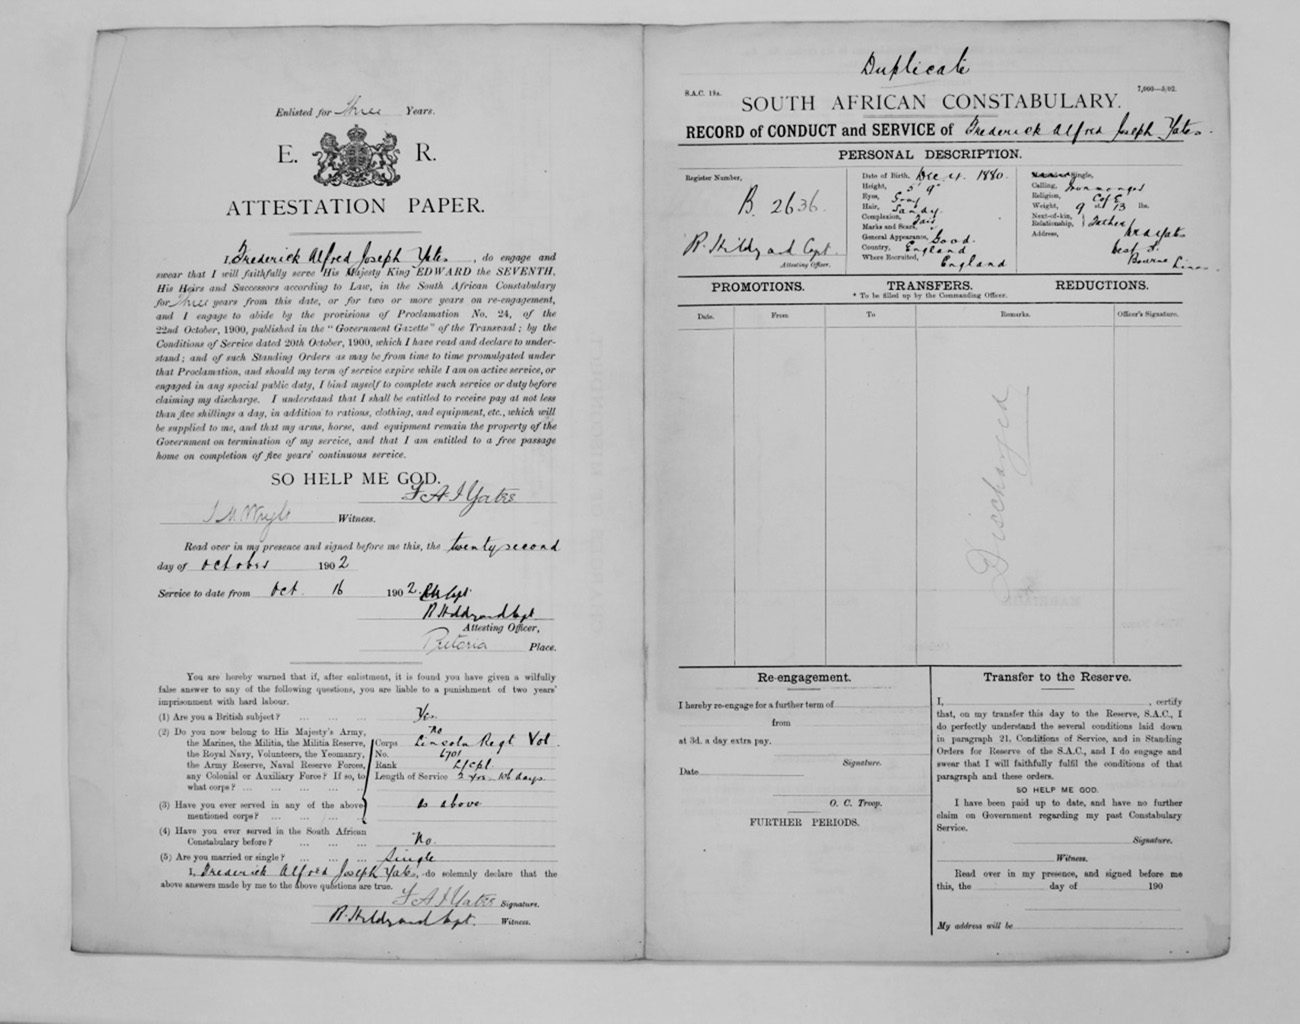 Enlisted for Three Years.
E. R.
ATTESTATION PAPER.
I, Frederick Alfred Joseph Yates, do engage and
swear that I will faithfully serve His Majesty King EDWARD the SEVENTH,
His Heirs and Successors according to Law, in the South African Constabulary
for Three years from this date, or for two or more years on re-engagement,
and I engage to abide by the provisions of Proclamation No. 24, of the
22nd October, 1900, published in the "Government Gazette" of the Transvaal; by the
Conditions of Service dated 20th October, 1900, which I have read and declare to under-
stand; and of such Standing Orders as may be from time to time promulgated under
that Proclamation, and should my term of service expire while I am on active service, or
engaged in any special public duty, I bind myself to complete such service or duty before
claiming my discharge. I understand that I shall be entitled to receive pay at not less
than five shillings a day, in addition to rations, clothing, and equipment, etc., which will
be supplied to me, and that my arms, horse, and equipment remain the property of the
Government on termination of my service, and that I am entitled to a free passage
home on completion of five years' continuous service.
SO HELP ME GOD.
F A J Yates
Witness.
Read over in my presence and signed before me this, the twenty second
day of October 1902
Service to date from Oct. 16 1902. Capt
R. Hildyard Capt
Attesting Officer,
Pretoria Place.
You are hereby warned that if, after enlistment, it is found you have given a wilfully
false answer to any of the following questions, you are liable to a punishment of two years'
imprisonment with hard labour.
(1) Are you a British subject? ... ... ... Yes
(2) Do you now belong to His Majesty's Army, No
the Marines, the Militia, the Militia Reserve, Corps Lincoln Regt Vol.
the Royal Navy, Volunteers, the Yeomanry, No. 6701
the Army Reserve, Naval Reserve Forces, Rank L/Cpl.
any Colonial or Auxiliary Force? If so, to Length of Service 2 yrs 106 days
what corps? ... ... ... ... ... ...
(3) Have you ever served in any of the above As above
mentioned corps? ... ... ... ...
(4) Have you ever served in the South African
Constabulary before? ... ... ... No.
(5) Are you married or single? ... ... ... Single
I, Frederick Alfred Joseph Yates, do solemnly declare that the
above answers made by me to the above questions are true.
F A J Yates Signature.
R. Hildyard Capt. Witness.
Duplicate
S.A.C. 19A. 7,000—5/02.
SOUTH AFRICAN CONSTABULARY.
RECORD of CONDUCT and SERVICE of Frederick Alfred Joseph Yates.
PERSONAL DESCRIPTION.
Register Number,
B. 2636.
R. Hildyard Capt.
Attesting Officer.
Date of Birth, Dec 4. 1880.
Height, 5' 9"
Eyes, Grey
Hair, Sandy
Complexion, Fair
Marks and Scars,
General Appearance, Good.
Country, England
Where Recruited, England
Single,
Calling, Ironmonger
Religion, C of E
Weight, 9 st. 13 lbs.
Next-of-kin,
Relationship, Father
Address, Yates
West St.
Bourne Lincs
PROMOTIONS. TRANSFERS. REDUCTIONS.
* To be filled up by the Commanding Officer.
Date. From To Remarks. Officer's Signature.
Discharged
Re-engagement.
I hereby re-engage for a further term of
from
at 3d. a day extra pay.
Signature.
Date
O. C. Troop.
FURTHER PERIODS.
Transfer to the Reserve.
I, , certify
that, on my transfer this day to the Reserve, S.A.C., I
do perfectly understand the several conditions laid down
in paragraph 21, Conditions of Service, and in Standing
Orders for Reserve of the S.A.C., and I do engage and
swear that I will faithfully fulfil the conditions of that
paragraph and these orders.
SO HELP ME GOD.
I have been paid up to date, and have no further
claim on Government regarding my past Constabulary
Service.
Signature.
Witness.
Read over in my presence, and signed before me
this, the day of 190
My address will be